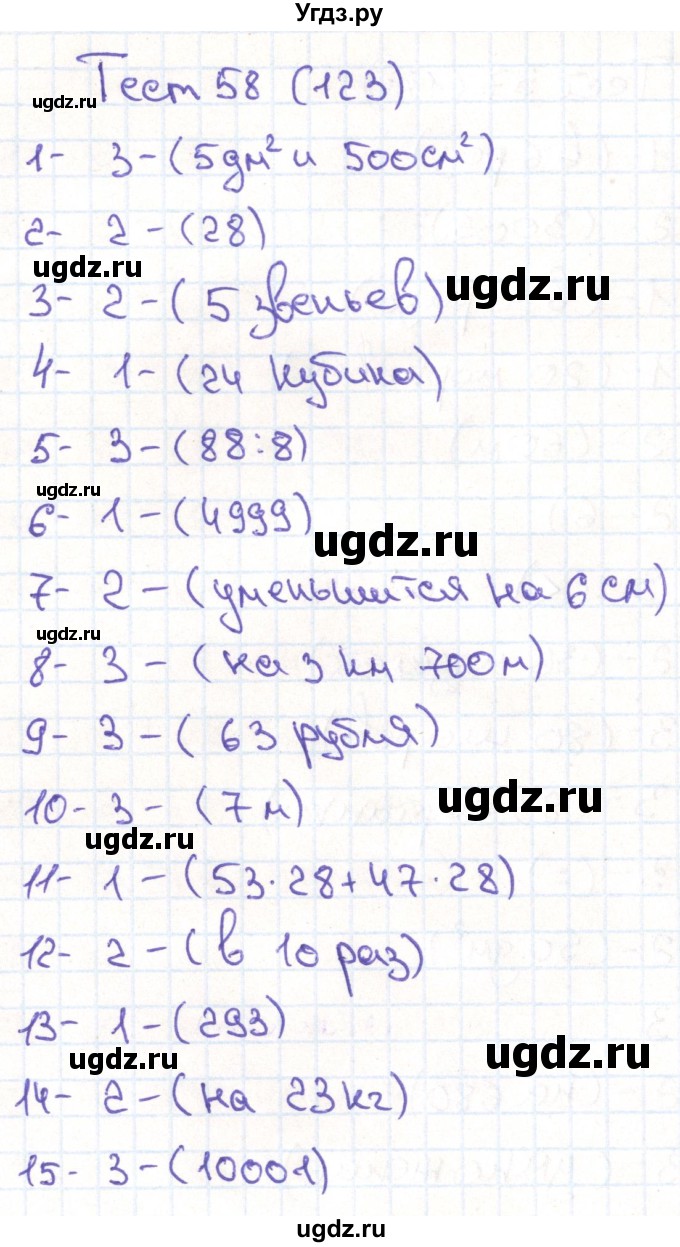 Угдз.ру
Тест 58 (123)
ugdz.ru
1- 3-(5дм² и 500см²)
2- 2-(28)
ugdz.ru
ugdz.ru
3- 2-(5 звеньев)
4- 1-(24 кубика)
5- 3-(88:8)
ugdz.ru
6- 1-(4999)
ugdz.ru
7- 2-(уменьшится на 6 см)
ugdz.ru
8- 3-(на 3 км 700м)
9- 3-(63 рубля)
10- 3-(7м)
ugdz.ru
ugdz.ru
11- 1-(53·28+47·28)
12- 2-(в 10 раз)
13- 1-(293)
ugdz.ru
ugdz.ru
14- 2-(на 23кг)
15- 3-(10001)
ugdz.ru